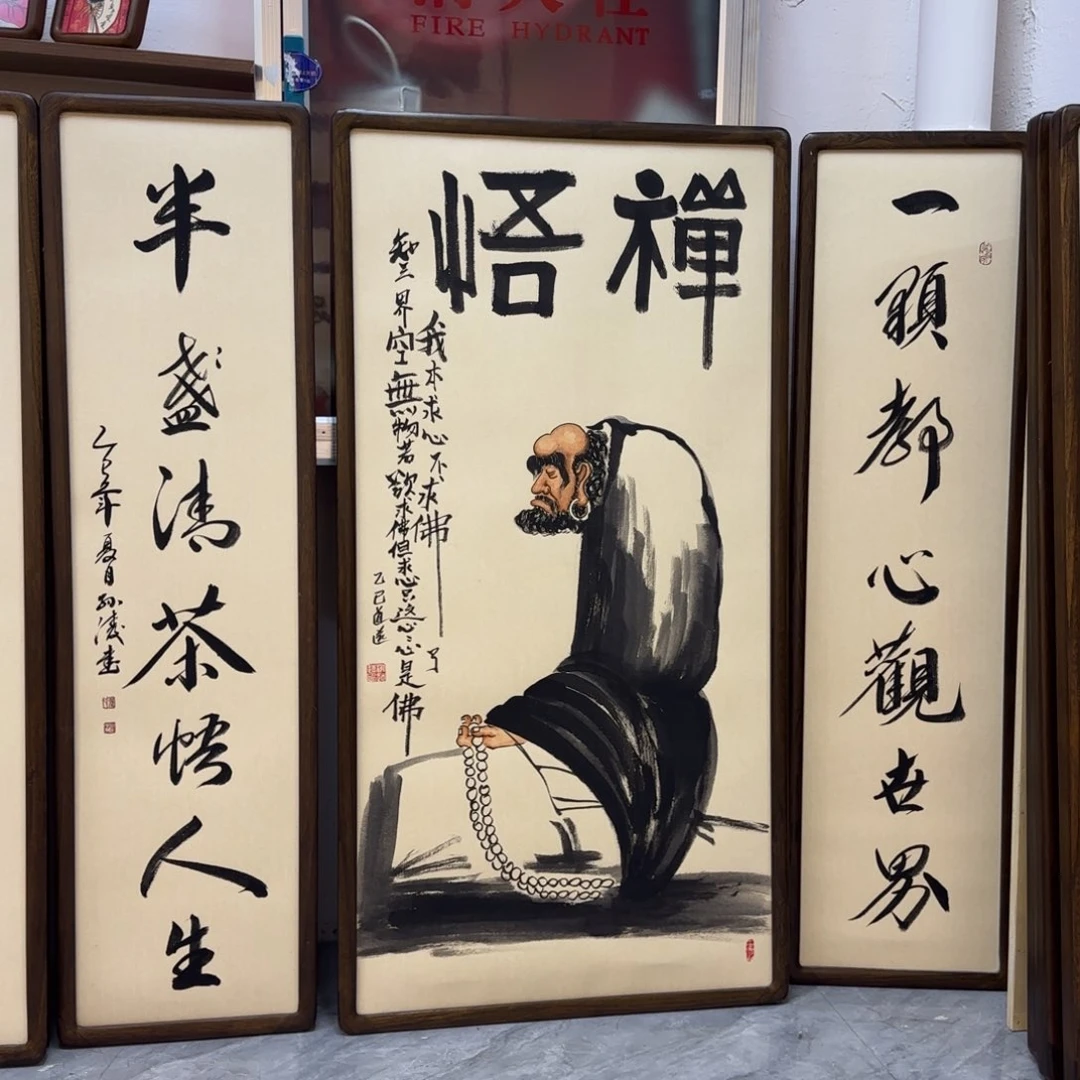 FIRE HYDRANT
禪悟
我本求心不求佛
了
知三界空無物若欲求佛但求心只这心心心是佛
乙巳
一顆静心觀世界
半盞清茶悟人生
乙巳年夏日孙